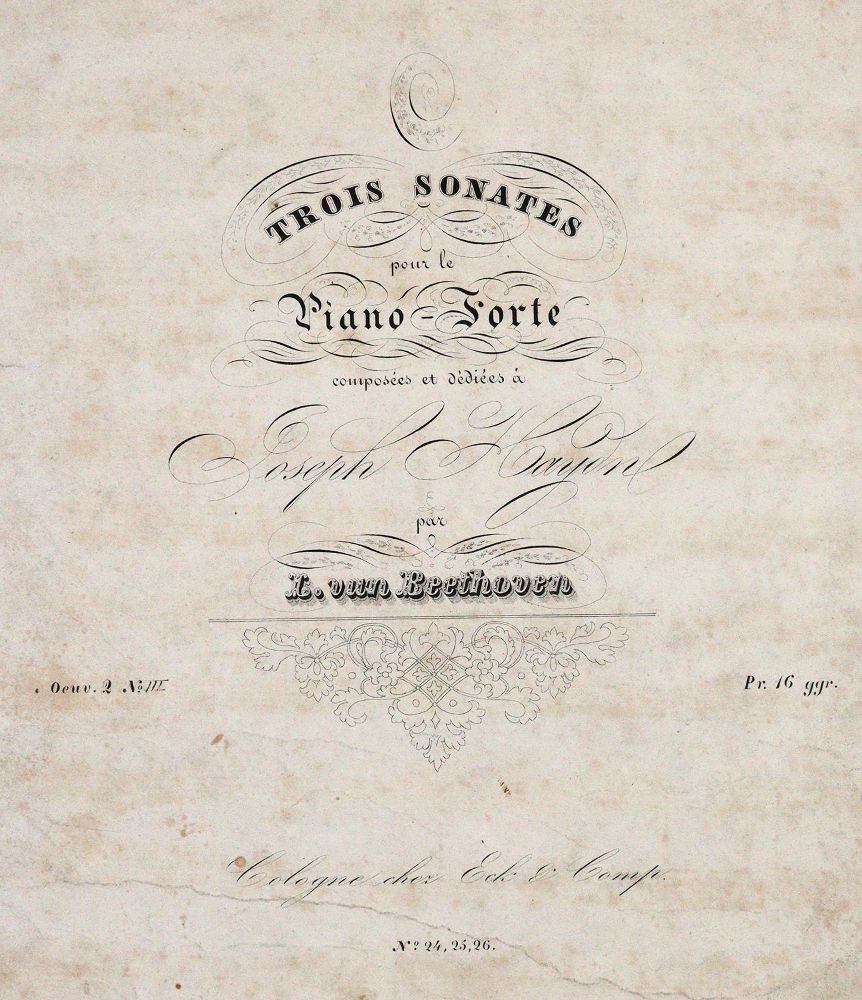 TROIS SONATES
pour le
Piano-Forte
composées et dédiées à
Joseph Haydn
par
L. van Beethoven
Oeuv. 2 No III
Pr. 16 ggr.
Cologne chez Eck & Comp.
No 24, 25, 26.